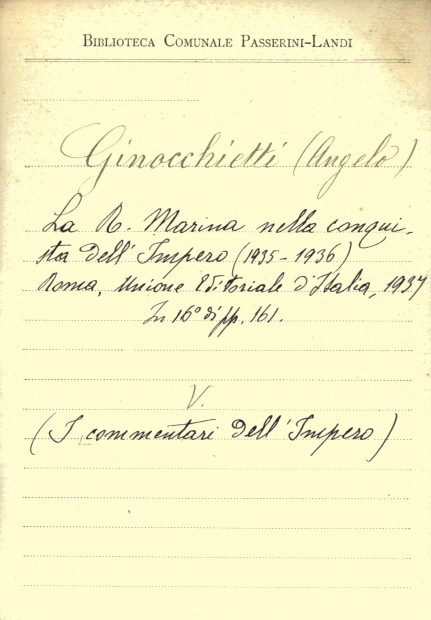 BIBLIOTECA COMUNALE PASSERINI-LANDI
Ginocchietti (Angelo)
La R. Marina nella conqui-
sta dell'Impero (1935-1936)
Roma, Unione Editoriale d'Italia, 1937
In 16° di pp. 161.
V.
(I commentari dell'Impero)